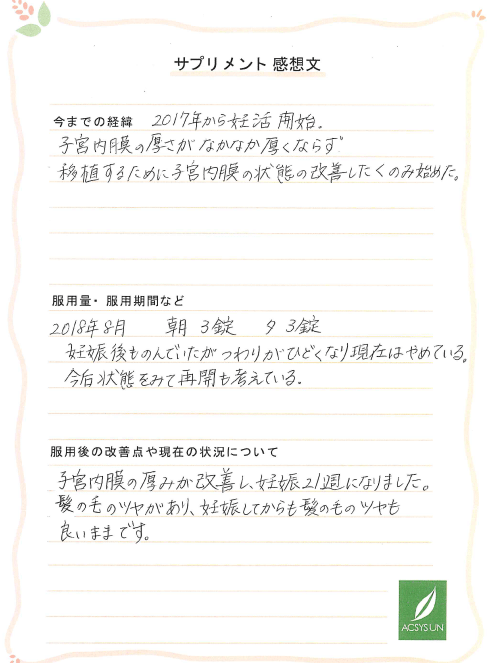 サプリメント 感想文
今までの経緯 2017年から妊活 開始.
子宮内膜の厚さが なかなか厚くならず
移植するために子宮内膜の状態の改善したくのみ始めた。
服用量・服用期間など
2018年8月 朝 3錠 夕 3錠
妊娠後ものんでいたが つわりがひどくなり現在はやめている。
今后状態をみて再開も考えている.
服用後の改善点や現在の状況について
子宮内膜の厚みが改善し、妊娠21週になりました。
髪の毛のツヤがあり、妊娠してからも髪の毛のツヤも
良いままです。
ACSYSUN